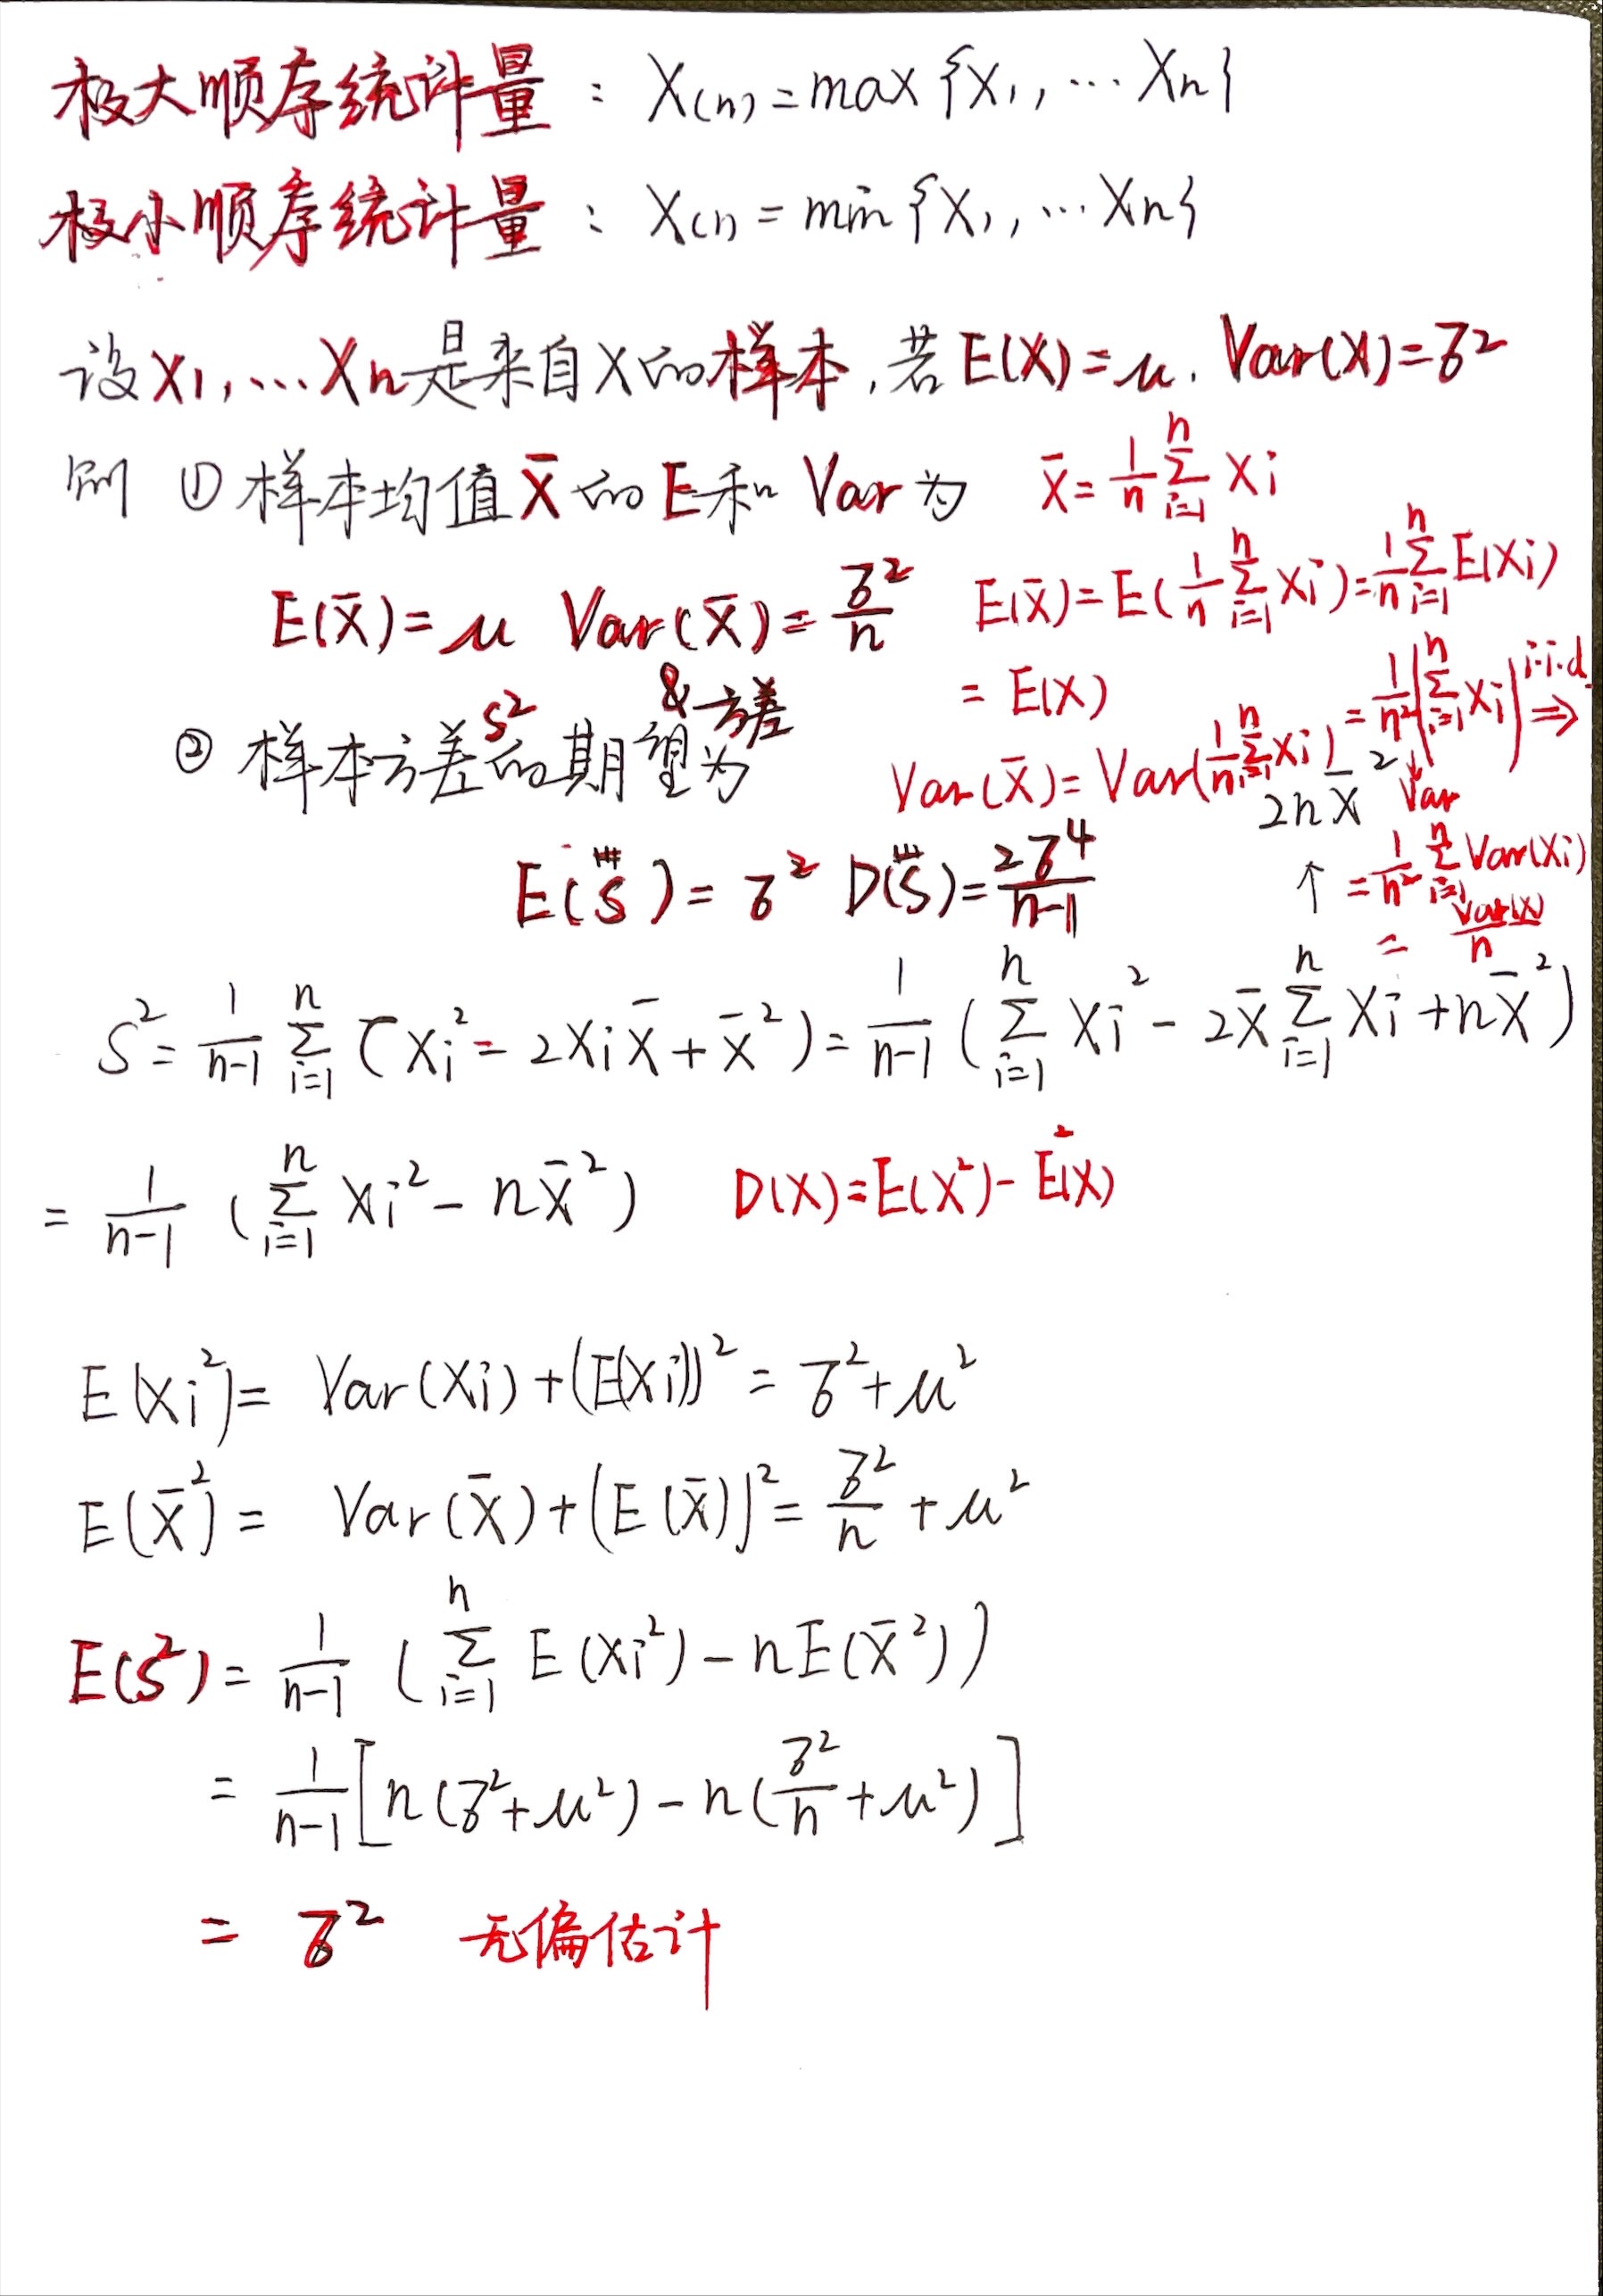 极大顺序统计量：X(n)=max{X1,…Xn}
极小顺序统计量：X(1)=min{X1,…Xn}
设X1,…Xn是来自X的样本,若E(X)=μ.Var(X)=σ²
则 ①样本均值X̄的E和Var为 X̄=1/n Σ(i=1→n) Xi
E(X̄)=μ Var(X̄)=σ²/n E(X̄)=E(1/n Σ(i=1→n) Xi)=1/n Σ(i=1→n) E(Xi)
=E(X)
②样本方差S²的期望&方差为
Var(X̄)=Var(1/n Σ(i=1→n) Xi)=1/n² |Σ(i=1→n) Xi| i.i.d. ⇒
Var
2nX̄²
↑
=1/n² Σ(i=1→n) Var(Xi)
=Var(X)/n
E( )=σ² D( )=2σ⁴/(n-1)
S²=1/(n-1) Σ(i=1→n) (Xi²-2XiX̄+X̄²)=1/(n-1) (Σ(i=1→n) Xi²-2X̄Σ(i=1→n) Xi+nX̄²)
=1/(n-1) (Σ(i=1→n) Xi²-nX̄²) D(X)=E(X²)-E²(X)
E(Xi²)=Var(Xi)+(E(Xi))²=σ²+μ²
E(X̄²)=Var(X̄)+(E(X̄))²=σ²/n+μ²
E(S²)=1/(n-1) (Σ(i=1→n) E(Xi²)-nE(X̄²))
=1/(n-1)[n(σ²+μ²)-n(σ²/n+μ²)]
=σ² 无偏估计